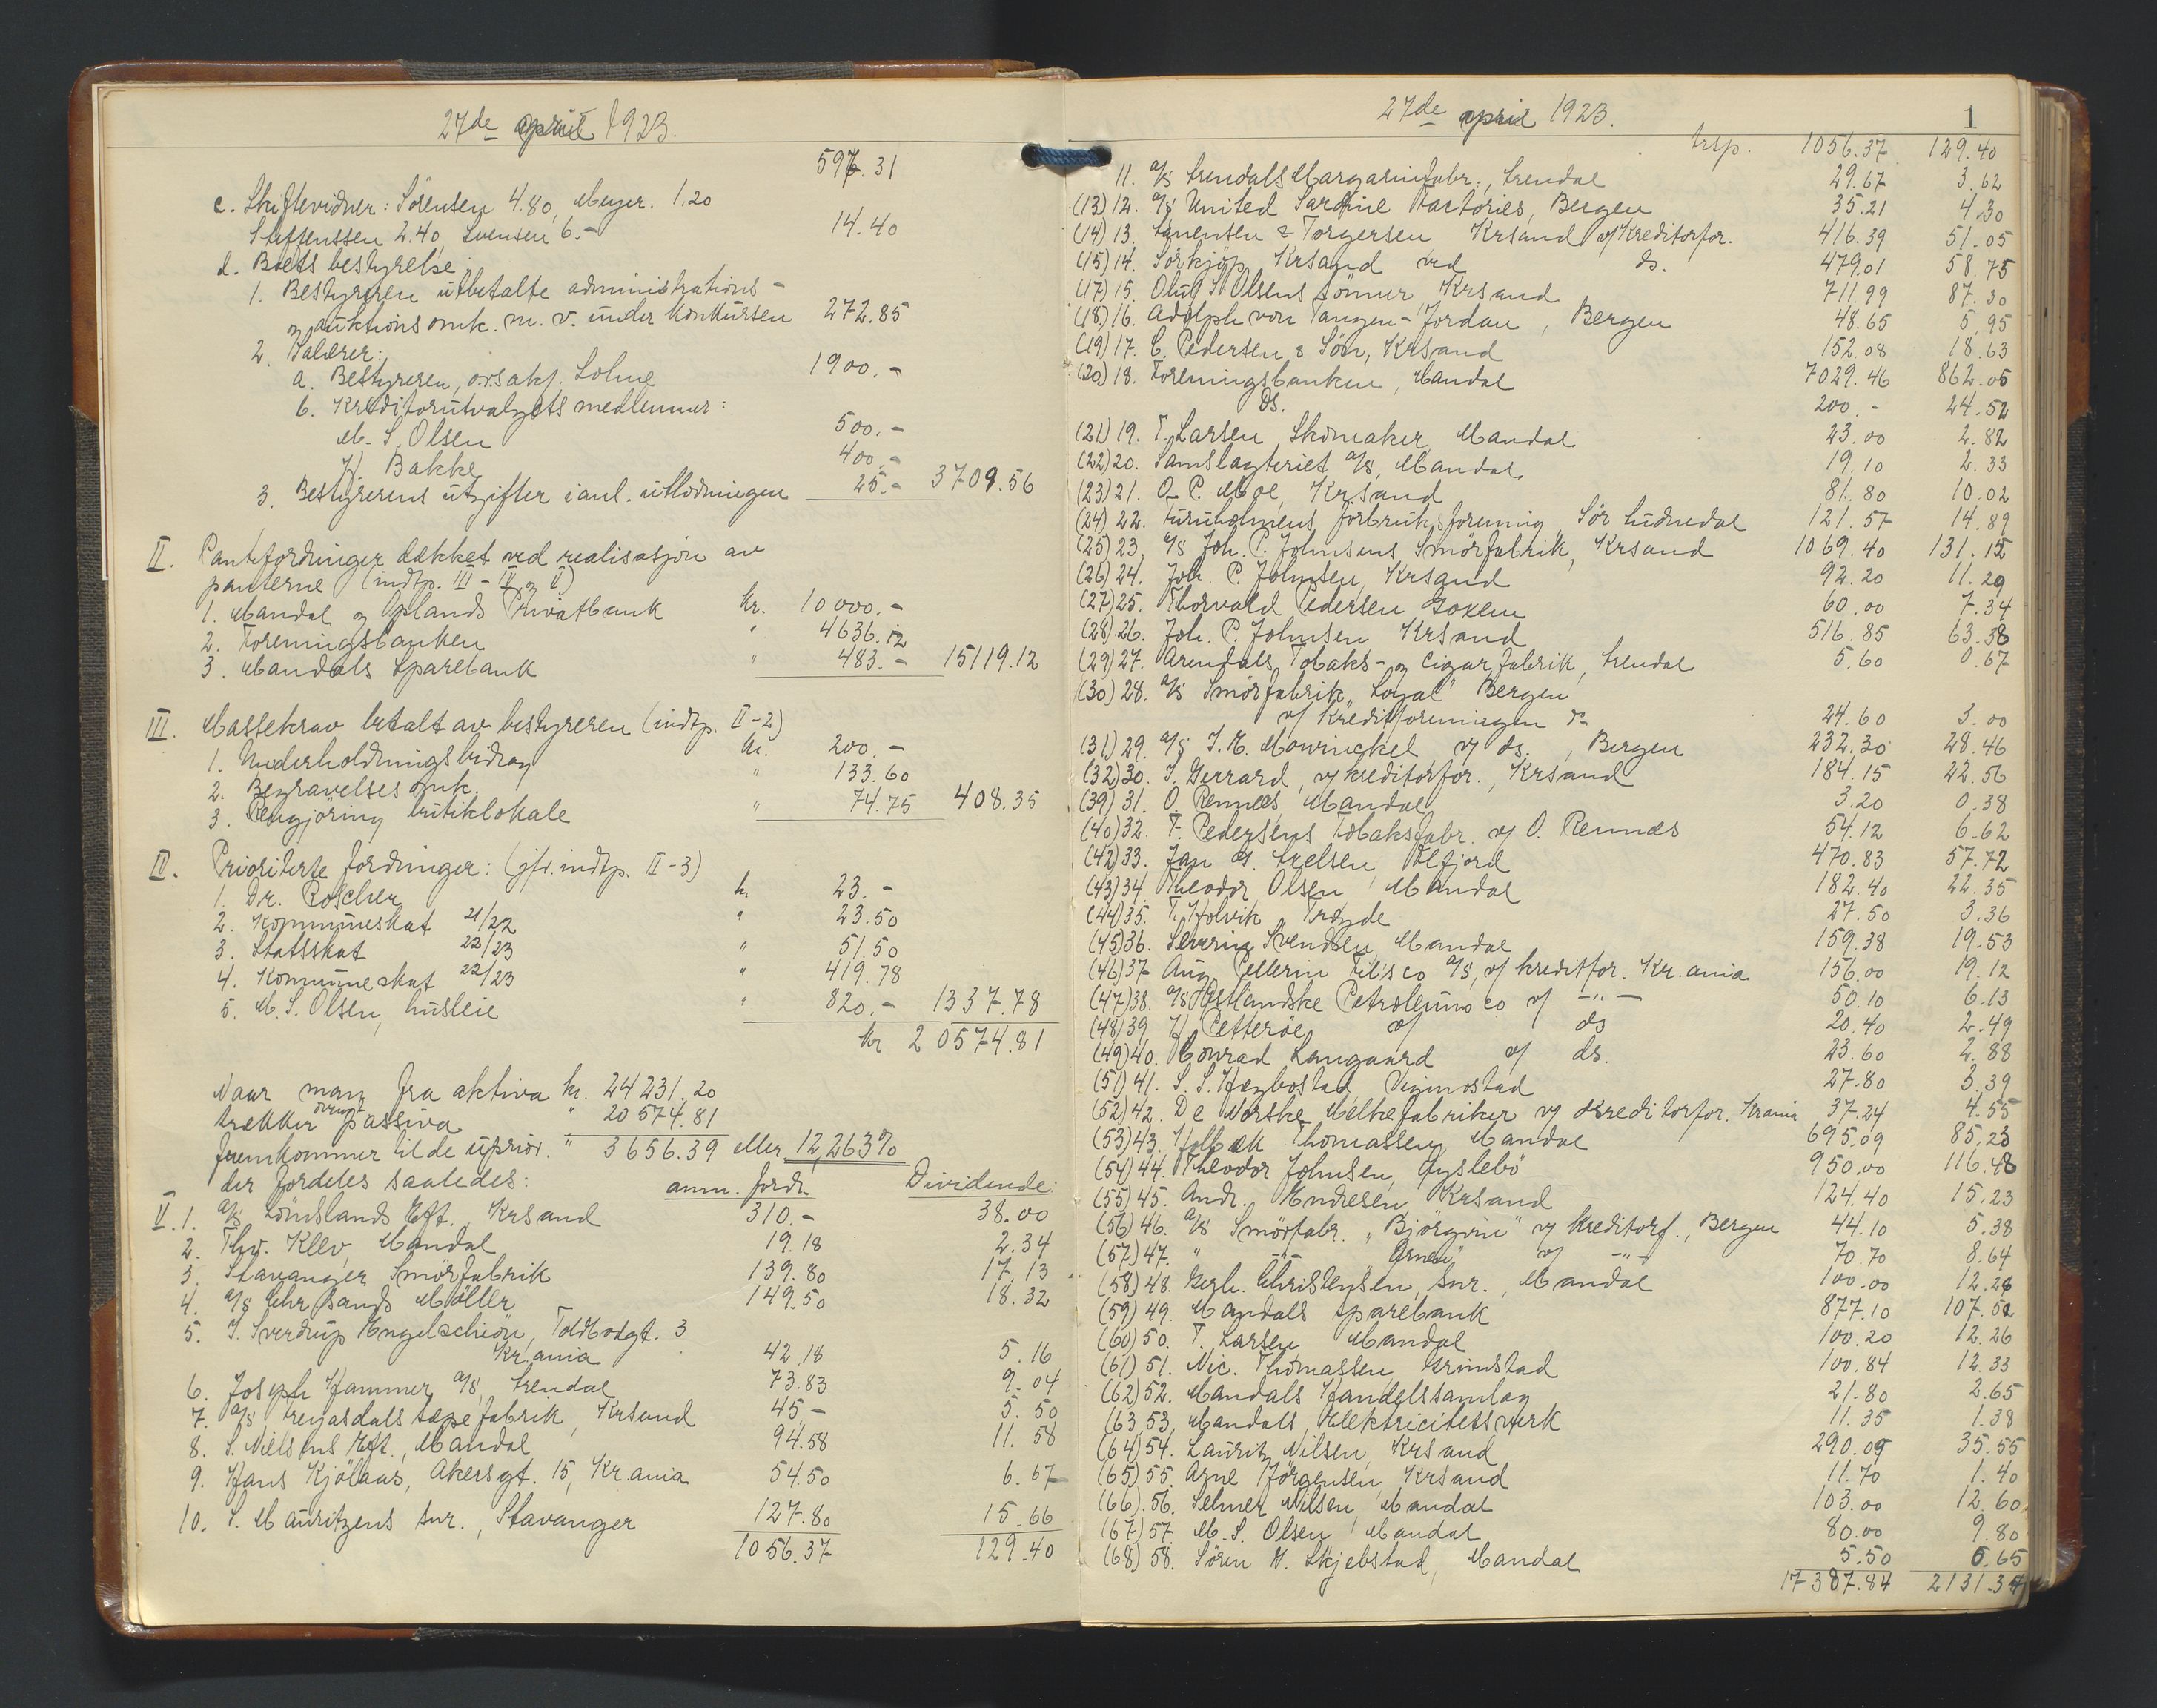 27de april 1923.
597.31
c. Skiftevidner: Sörensen 4.80, Meyer. 1.20
Steffenssen 2.40, Svensen 6.- 14.40
d. Boets bestyrelse:
1. Bestyreren utbetalte administrations-
og auktionsomk. m. v. under konkursen 272.85
2. Salærer:
a. Bestyreren, o.r.sakf. Lohne 1900.-
b. Kreditorutvalgets medlemmer:
M. S. Olsen 500.-
H. Bakke 400.-
3. Bestyrerens utgifter i anl. utlodningen 25.- 3709.56
II. Pantefordringer dækket ved realisasjon av
panterne (indtp. III - IV og V)
1. Mandal og Oplands Privatbank kr. 10000.-
2. Foreningsbanken " 4636.12
3. Mandals Sparebank " 483.- 15119.12
III. Massekrav betalt av bestyreren (indtp. II-2)
1. Underholdningsbidrag kr. 200.-
2. Begravelsesomk. " 133.60
3. Rengjöring butiklokale " 74.75 408.35
IV. Prioriterte fordringer: (jfr. indtp. II-3)
1. Dr. Roscher k. 23.-
2. Kommuneskat 21/22 " 23.50
3. Statsskat 22/23 " 51.50
4. Kommuneskat 22/23 " 419.78
5. M. S. Olsen, husleie " 820.- 1337.78
kr 20574.81
Naar man fra aktiva kr. 24231.20
trekker ovenst. passiva " 20574.81
fremkommer til de uprior. " 3656.39 eller 12,263%
der fordeles saaledes: anm. fordr. Dividende:
V. 1. A/S Lömslands Eft., Krsand 310.- 38.00
2. Thv. Klev, Mandal 19.18 2.34
3. Stavanger Smörfabrik 139.80 17.13
4. A/S Chr.sands Möller 149.50 18.32
5. J. Sverdrup Engelschiön, Toldbodgt. 3
Kr.ania 42.18 5.16
6. Joseph Hammer A/S, Arendal 73.83 9.04
7. A/S Trejasdals sæpefabrik, Krsand 45.- 5.50
8. S. Nielsens Eft., Mandal 94.58 11.58
9. Hans Kjölaas, Akersgt. 15, Kr.ania 54.50 6.67
10. S. Mauritzens snr., Stavanger 127.80 15.66
1056.37 129.40
27de april 1923.
1
trsp. 1056.37 129.40
11. A/S Arendals Margarinfabr., Arendal 29.67 3.62
(13) 12. A/S United Sardine Factories, Bergen 35.21 4.30
(14) 13. Laurentsen & Torgersen Krsand v/Kreditorfor. 416.39 51.05
(15) 14. Sörkjöp, Krsand ved ds. 479.01 58.75
(17) 15. Oluf S. Olsens Sönner, Krsand 711.99 87.30
(18) 16. Adolph von Tangen-Jordan, Bergen 48.65 5.95
(19) 17. C. Pedersen & Sön, Krsand 152.08 18.63
(20) 18. Foreningsbanken, Mandal 7029.46 862.05
Ds. 200.- 24.52
(21) 19. T. Larsen, Skomaker, Mandal 23.00 2.82
(22) 20. Samslagteriet A/S, Mandal 19.10 2.33
(23) 21. O. P. Moe, Krsand 81.80 10.02
(24) 22. Furuholmens forbruksforening, Sör Audnedal 121.57 14.89
(25) 23. A/S Joh. P. Johnsens Smörfabrik, Krsand 1069.40 131.15
(26) 24. Joh. P. Johnsen, Krsand 92.20 11.29
(27) 25. Thorvald Pedersen Goxem 60.00 7.34
(28) 26. Joh. P. Johnsen Krsand 516.85 63.38
(29) 27. Arendals Tobaks- og Cigarfabrik, Arendal 5.60 0.67
(30) 28. A/S Smörfabrik "Loyal" Bergen
v/ Kreditforeningen ds 24.60 3.00
(31) 29. A/S J. M. Mowinckel v/ ds., Bergen 232.30 28.46
(32) 30. J. Gerrard, v/ kreditorfor., Krsand 184.15 22.56
(39) 31. O. Rennæs, Mandal 3.20 0.38
(40) 32. F. Pedersens Tobaksfabr. v/ O. Rennæs 54.12 6.62
(42) 33. Jan G. Axelsen, Aafjord 470.83 57.72
(43) 34. Theodor Olsen Mandal 182.40 22.35
(44) 35. T. Holvik, Trøgde 27.50 3.36
(45) 36. Severin Svendsen, Mandal 159.38 19.53
(46) 37 Aug. Pellerin Fils co A/S, v/ kreditfor. Kr.ania 156.00 19.12
(47) 38. A/S Østlandske Petroleums co v/ -"- 50.10 6.13
(48) 39 H. Petterøe v/ ds 20.40 2.49
(49) 40. Conrad Langaard v/ ds. 23.60 2.88
(51) 41. S. S. Hægbostad, Vigmostad 27.80 3.39
(52) 42. De Norske Melkefabriker v/ Kreditorfor. Krania 37.24 4.55
(53) 43. Holbæk Thomassen, Mandal 695.09 85.23
(54) 44. Theodor Johnsen, Øyslebö 950.00 116.48
(55) 45. Andr. Endresen, Krsand 124.40 15.23
(56) 46. A/S Smörfabr. "Björgvin" v/ kreditorf., Bergen 44.10 5.38
(57) 47. " -"- "Arnea" v/ -"- 70.70 8.64
(58) 48. Gerh. Christensen, snr., Mandal 100.00 12.26
(59) 49. Mandals Sparebank 877.10 107.52
(60) 50. T. Larsen Mandal 100.20 12.26
(61) 51. Nic. Thomassen, Grimstad 100.84 12.33
(62) 52. Mandals Handelssamlag 21.80 2.65
(63 53. Mandals Elektricitetsverk 11.35 1.38
(64) 54. Lauritz Nilsen, Krsand 290.09 35.55
(65) 55. Arne Jörgensen, Krsand 11.70 1.40
(66). 56. Selmer Nilsen, Mandal 103.00 12.60
(67) 57. M. S. Olsen, Mandal 80.00 9.80
(68) 58. Sören G. Skjebstad, Mandal 5.50 0.65
17387.84 2131.34